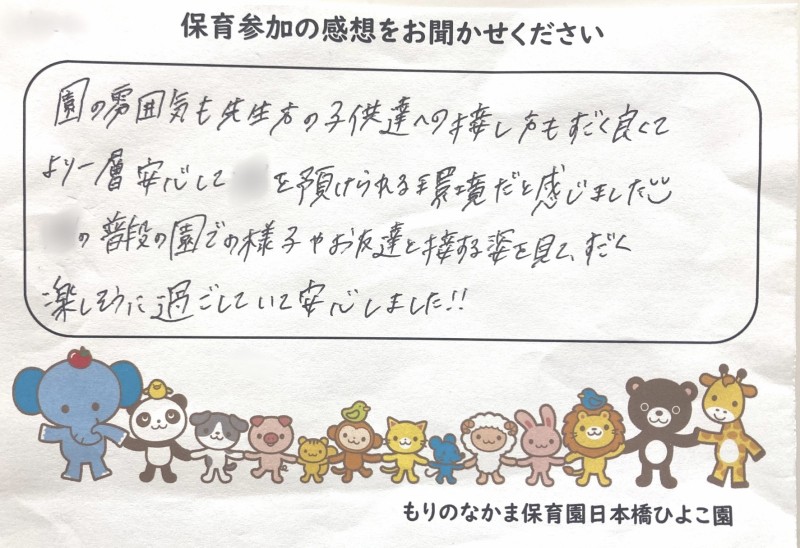 保育参加の感想をお聞かせください
園の雰囲気も先生方の子供達への接し方もすごく良くて
より一層安心して を預けられる環境だと感じました
の普段の園での様子やお友達と接する姿を見て、すごく
楽しそうに過ごしていて安心しました!!
もりのなかま保育園日本橋ひよこ園